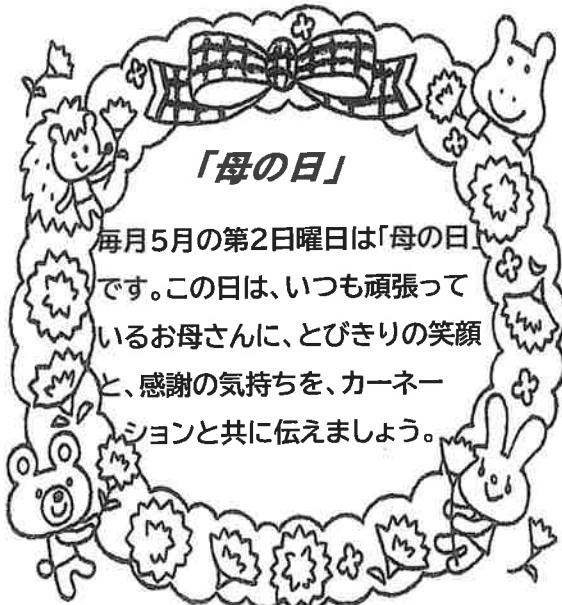 「母の日」
毎月5月の第2日曜日は「母の日」
です。この日は、いつも頑張って
いるお母さんに、とびきりの笑顔
と、感謝の気持ちを、カーネー
ションと共に伝えましょう。